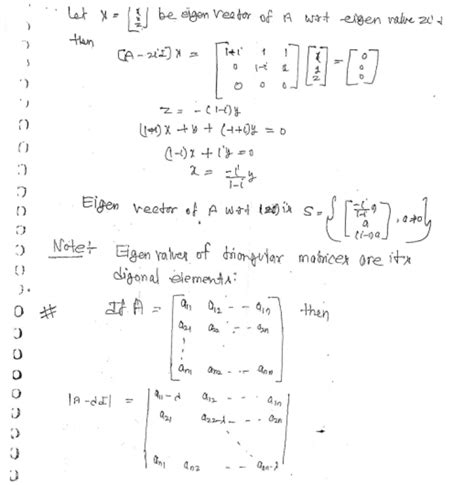 Let x = [x y z] be eigen vector of A wrt eigen value 2i
then
[A-2iI]x = [1+i 1 1; 0 1-i 1; 0 0 0] [x y z] = [0 0 0]
z = -(1-i)y
(1+i)x + y + (-1+i)y = 0
(1-i)x + iy = 0
x = -i/1-i y
Eigen vector of A wrt (2i) is S = { [-i/1-i a, a, (i-1)a], a≠0 }
Note:- Eigen values of triangular matrices are its
digonal elements:
# If A = [a11 a12 -- a1n; a21 a22 -- a2n; an1 an2 -- ann] then
|A-λI| = |a11-λ a12 -- a1n; a21 a22-λ -- a2n; an1 an2 -- ann-λ|